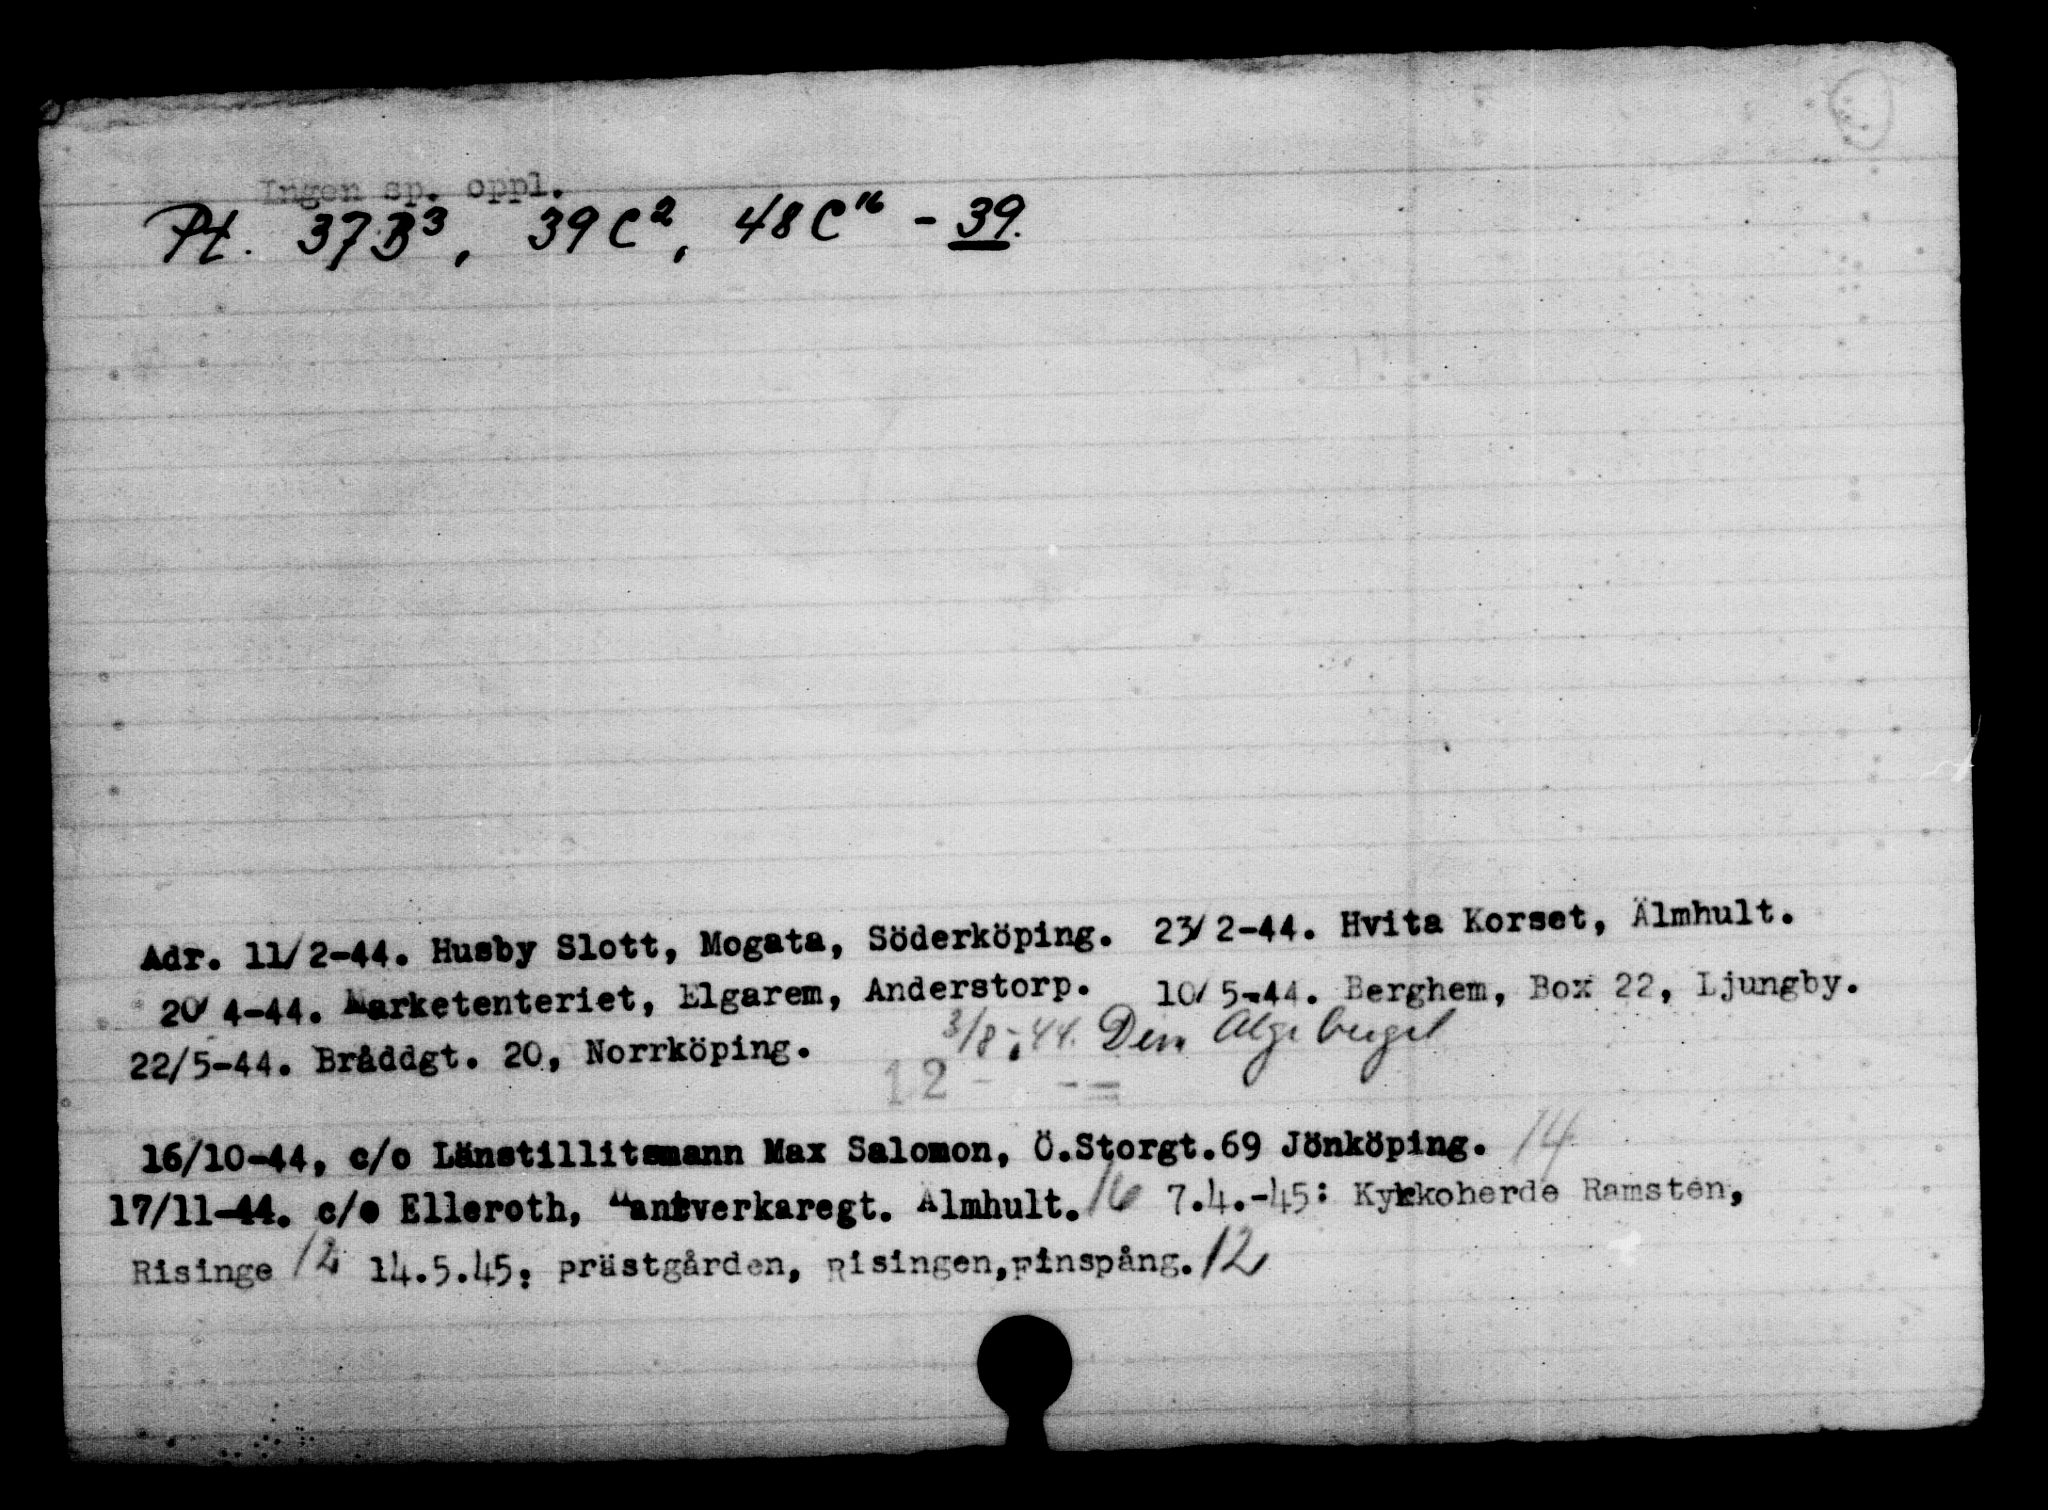 Ingen sp. oppl.
Pt. 37B³, 39C², 48C¹⁶ - 39.
Adr. 11/2-44. Husby Slott, Mogata, Söderköping. 23/2-44. Hvita Korset, Älmhult.
20/4-44. Marketenteriet, Elgarem, Anderstorp. 10/5-44. Berghem, Box 22, Ljungby.
22/5-44. Bråddgt. 20, Norrköping. 3/8-44. Den
12 - - =
16/10-44, c/o Länstillitsmann Max Salomon, Ö.Storgt.69 Jönköping. 14
17/11-44. c/o Elleroth, Hantverkaregt. Älmhult. 16 7.4.-45: Kyrkoherde Ramsten,
Risinge 12 14.5.45: Prästgården, Risingen, Finspång. 12